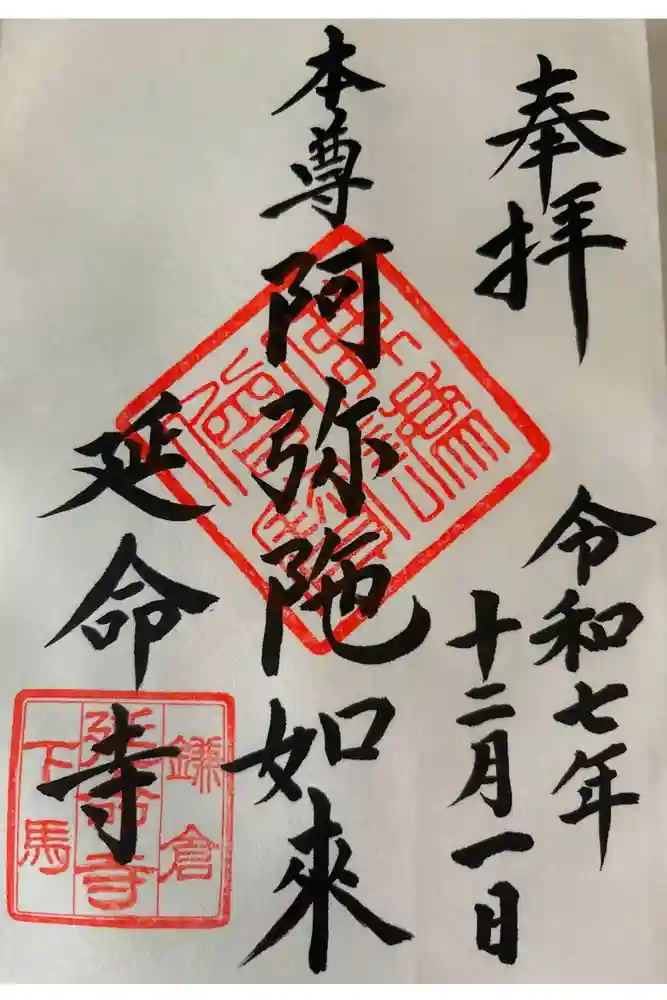 奉拝
令和七年
十二月一日
本尊
阿弥陀如来
延命寺
鎌倉
延命寺
下馬